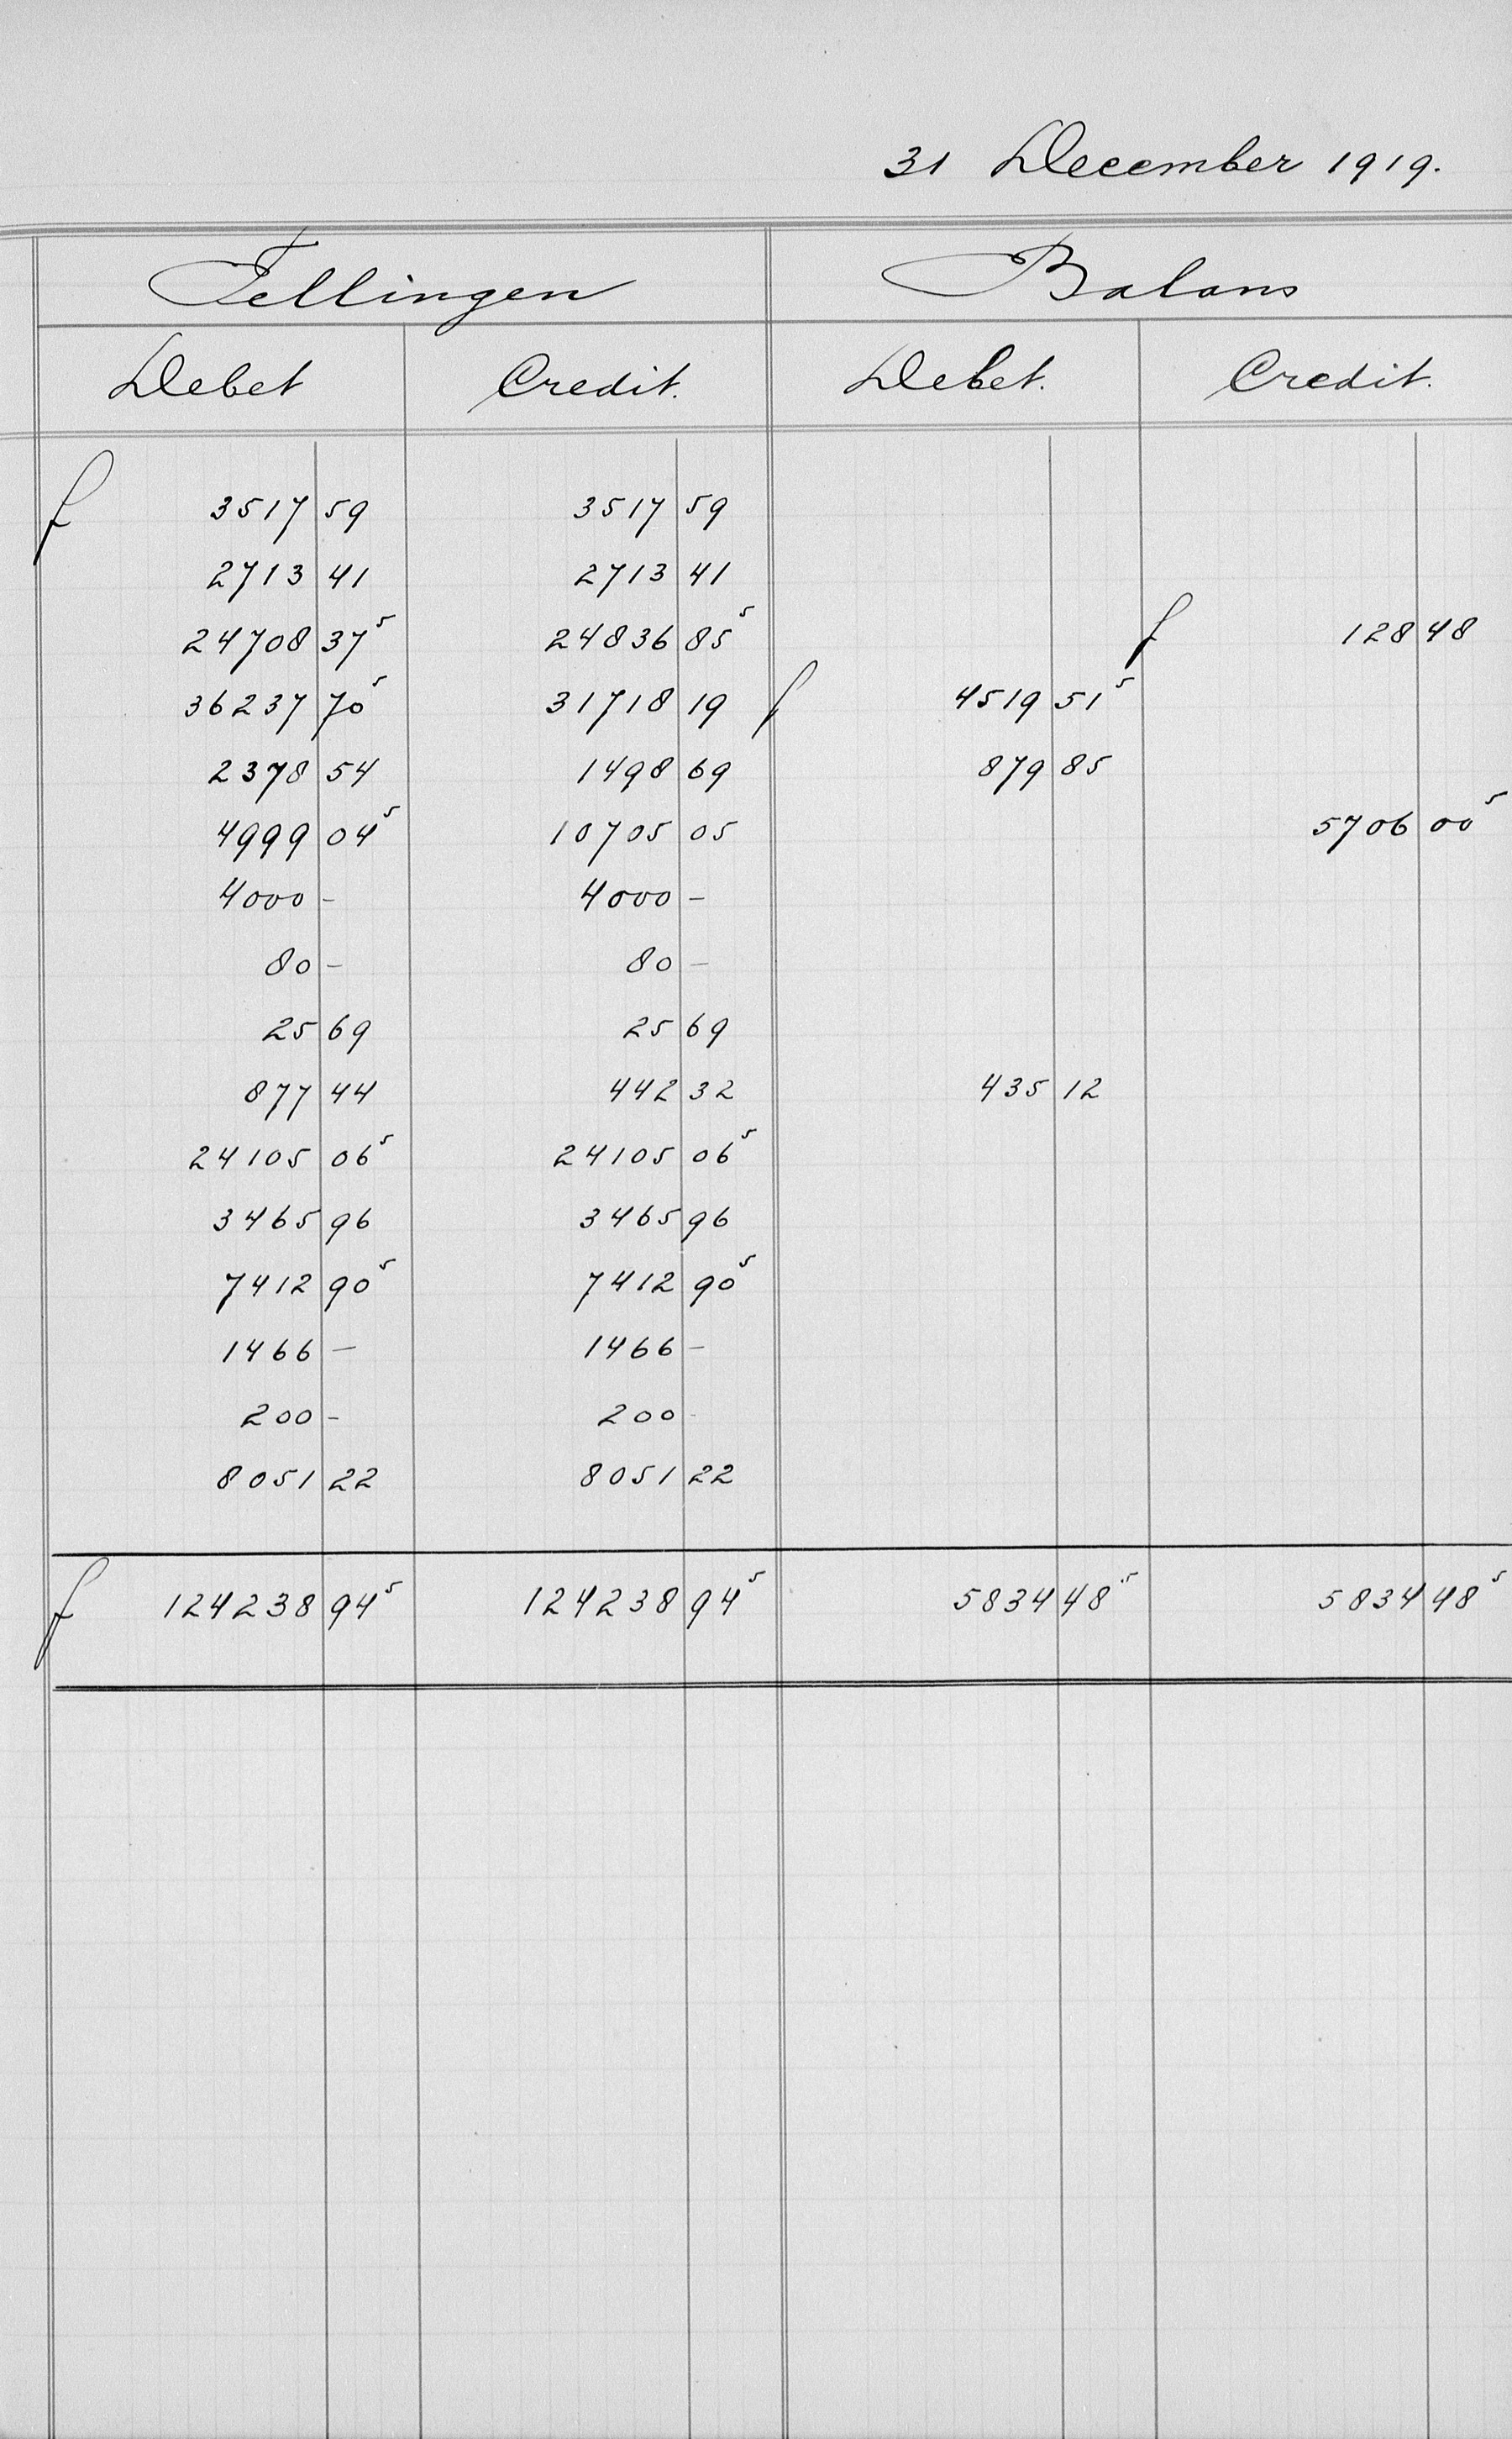 31 December 1919.
Tellingen Balans
Debet Credit. Debet. Credit.
f 3517 59 3517 59
2713 41 2713 41
24708 37⁵ 24836 85⁵ f 128 48
36237 70⁵ 31718 19 f 4519 51⁵
2378 54 1498 69 879 85
4999 04⁵ 10705 05 5706 00⁵
4000 - 4000 -
80 - 80 -
25 69 25 69
877 44 442 32 435 12
24105 06⁵ 24105 06⁵
3465 96 3465 96
7412 90⁵ 7412 90⁵
1466 - 1466 -
200 - 200 -
8051 22 8051 22
f 124238 94⁵ 124238 94⁵ 5834 48⁵ 5834 48⁵